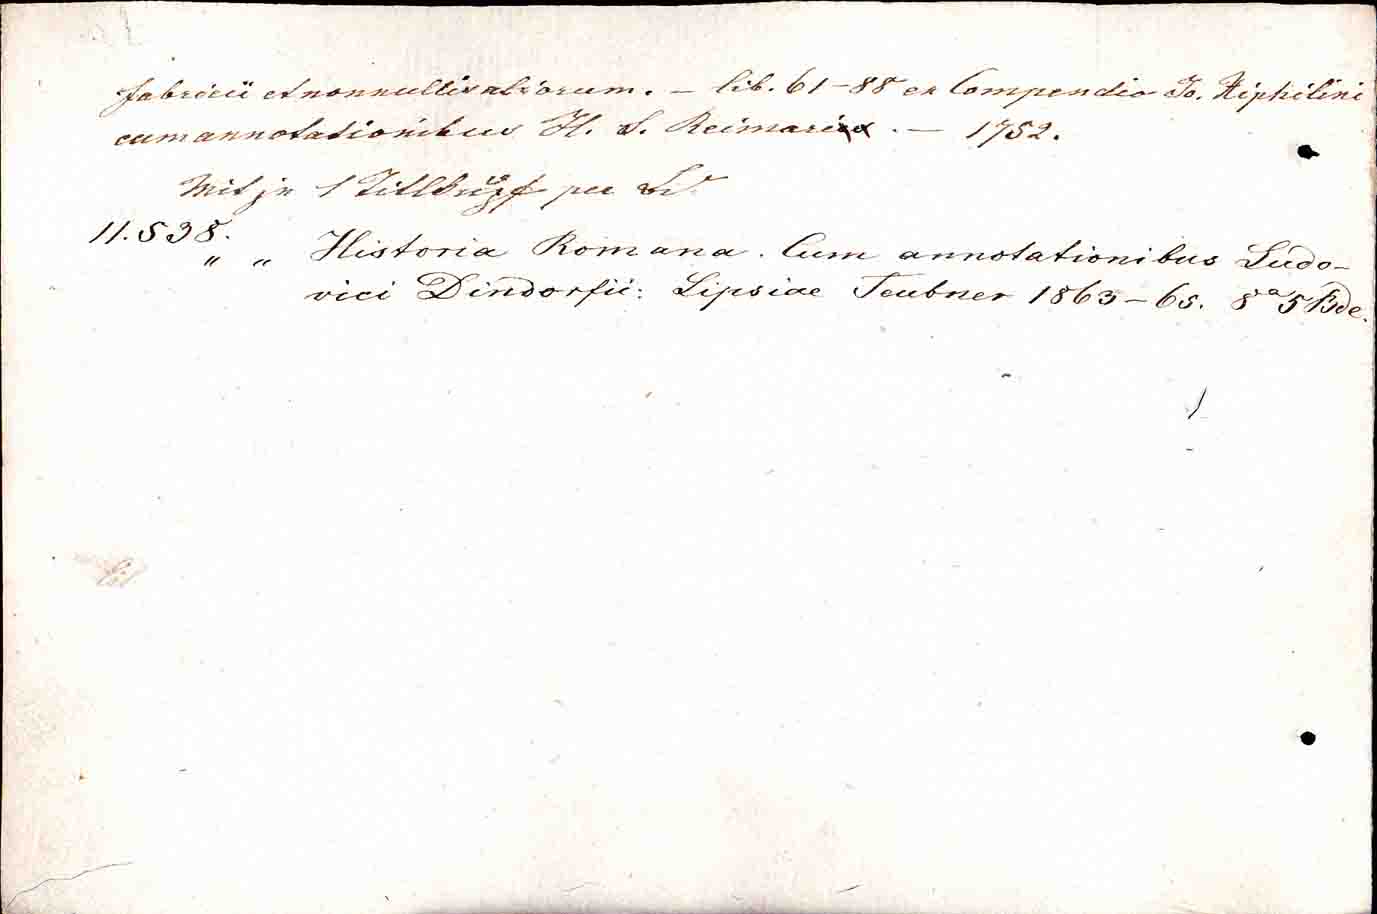 Fabricii et nonnullis aliorum. — lib. 61–88 ex Compendio Jo. Xiphilini
cum annotationibus H. S. Reimari . — 1752.
Mit je 1 Titlkupf per
11.538.
" " Historia Romana. Cum annotationibus Ludo-
vici Dindorfii: Lipsiae Teubner 1863–65. 8° 5 Bde.